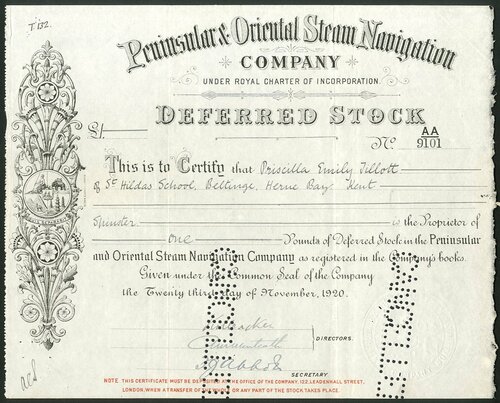 T 132.
Peninsular & Oriental Steam Navigation
COMPANY
UNDER ROYAL CHARTER OF INCORPORATION.
DEFERRED STOCK
£1
No. AA 9101
This is to Certify that Priscilla Emily Tillott
of St Hildas School, Beltinge, Herne Bay, Kent
Spinster is the Proprietor of
one Pounds of Deferred Stock in the Peninsular
and Oriental Steam Navigation Company as registered in the Company's books.
Given under the Common Seal of the Company
the Twenty third day of November, 1920.
DIRECTORS.
SECRETARY.
NOTE THIS CERTIFICATE MUST BE DEPOSITED AT THE OFFICE OF THE COMPANY 122, LEADENHALL STREET,
LONDON, WHEN A TRANSFER OF THE WHOLE OR ANY PART OF THE STOCK TAKES PLACE.